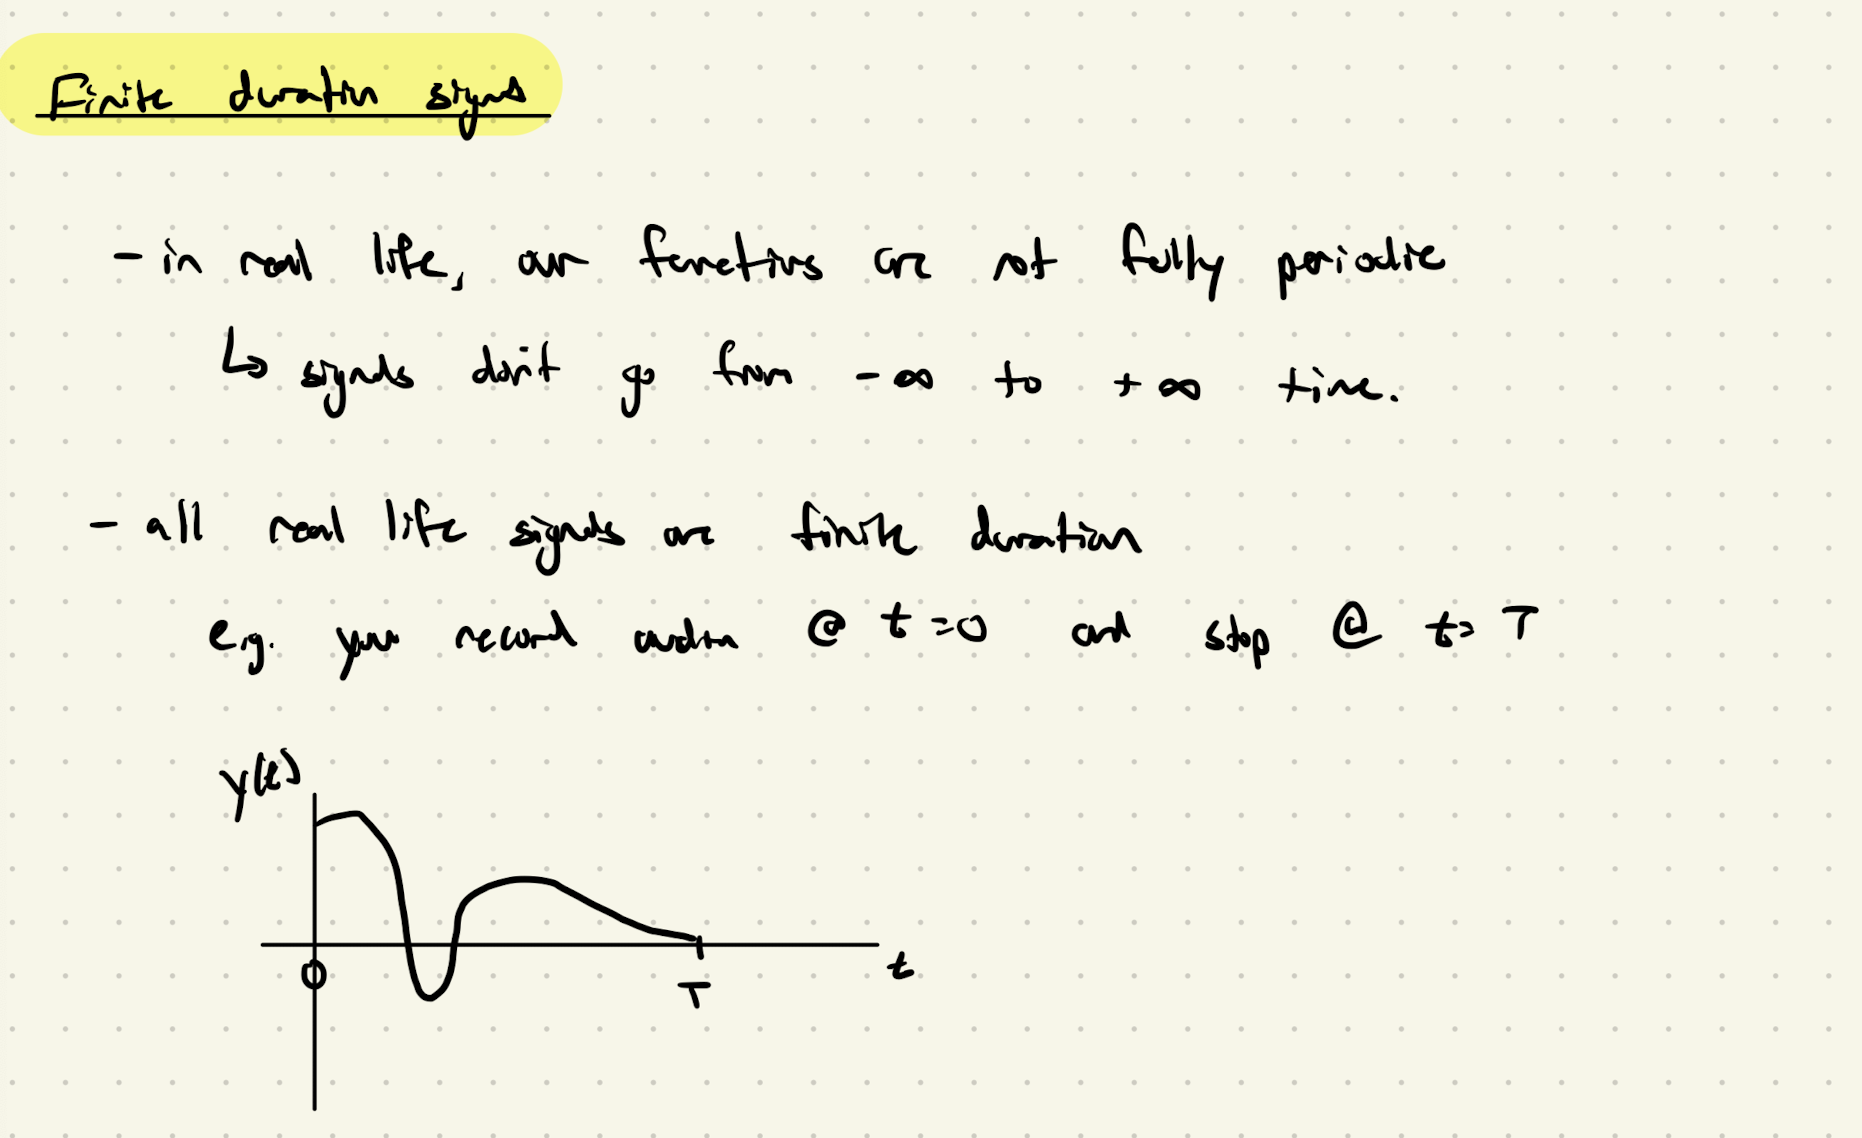 Finite duration signals
- in real life, our functions are not fully periodic
↳ signals don't go from -∞ to +∞ time.
- all real life signals are finite duration
e.g. you record audio @ t=0 and stop @ t= T
y(t)
0
T
t